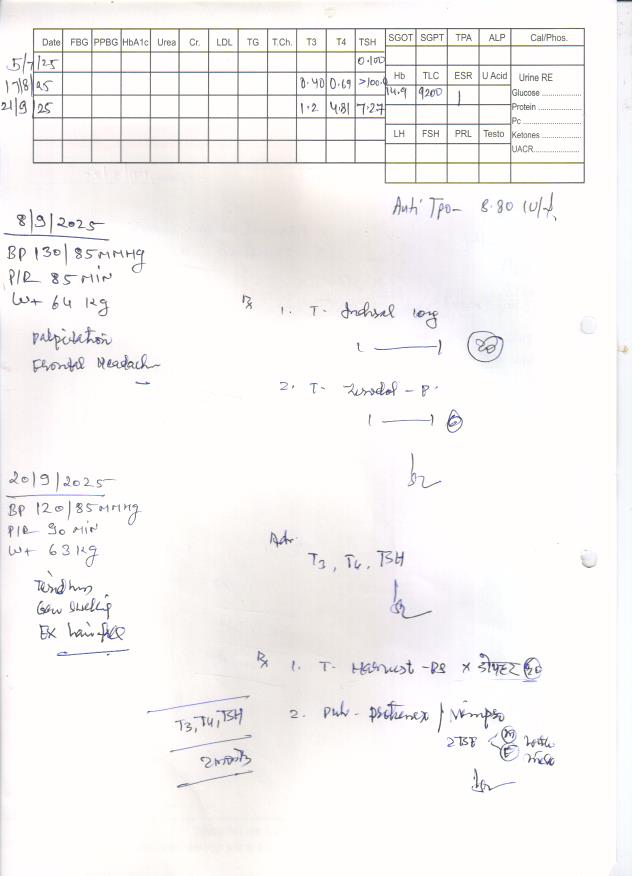 Date FBG PPBG HbA1c Urea Cr. LDL TG T.Ch. T3 T4 TSH SGOT SGPT TPA ALP Cal/Phos.
5/7/25 0.100
17/8/25 0.40 0.69 >100.0
21/9/25 1.2 4.81 7.27
Hb TLC ESR U Acid Urine RE
14.9 9200
Glucose
Protein
Pc
Ketones
UACR
LH FSH PRL Testo
Anti TPO- 8.80 IU/
8/9/2025
BP 130/85 MMHg
P/R 85 MIN
W+ 64 Kg
Palpitation
Frontal Headach
Rx 1. T- long
1 1 20
2. T- Zerodol - P.
1 1 6
20/9/2025
BP 120/85 MMHg
P/R 90 MIN
W+ 63 Kg
Tirdness
swelling
EX hairfall
Adv.
T3, T4, TSH
Rx 1. T- - x दोपहर
2. 
2 TSF M
E milk
T3, T4, TSH
2 months